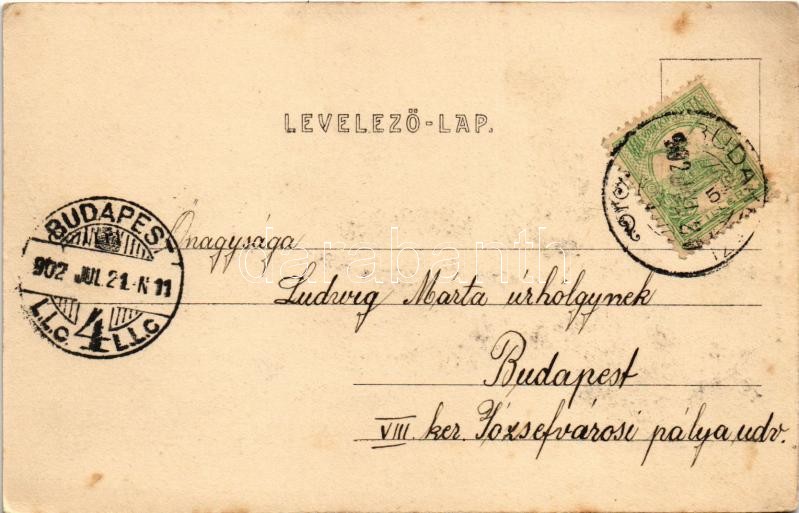 LEVELEZŐ-LAP.
BUDA
902
BUDAPEST
902 JUL. 21. N 11
4
L.L.C. L.L.C.
Őnagysága
Ludwig Márta úrhölgynek
Budapest
VIII. ker. Józsefvárosi pálya udv.
darabanth